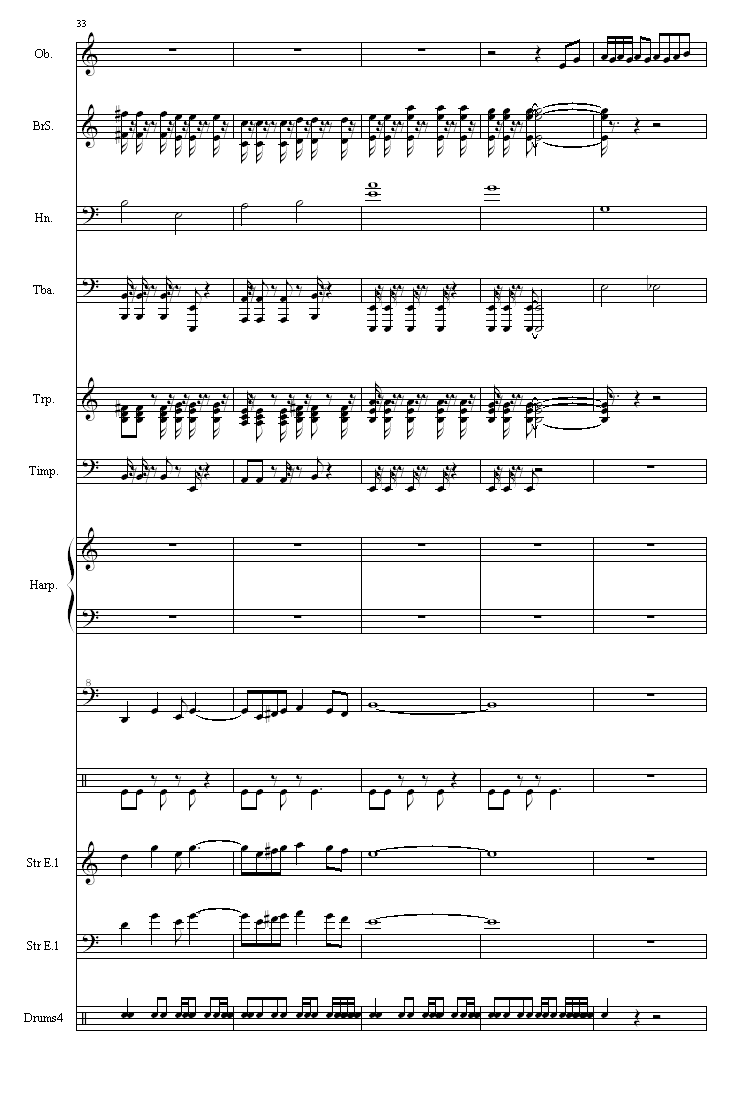 33
Ob.
BrS.
Hn.
Tba.
Trp.
Timp.
Harp.
8
Str E.1
Str E.1
Drums4